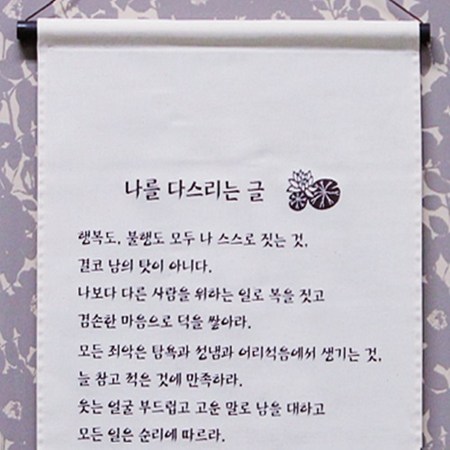 나를 다스리는 글
행복도, 불행도 모두 나 스스로 짓는 것,
결코 남의 탓이 아니다.
나보다 다른 사람을 위하는 일로 복을 짓고
겸손한 마음으로 덕을 쌓아라.
모든 죄악은 탐욕과 성냄과 어리석음에서 생기는 것,
늘 참고 적은 것에 만족하라.
웃는 얼굴 부드럽고 고운 말로 남을 대하고
모든 일은 순리에 따르라.